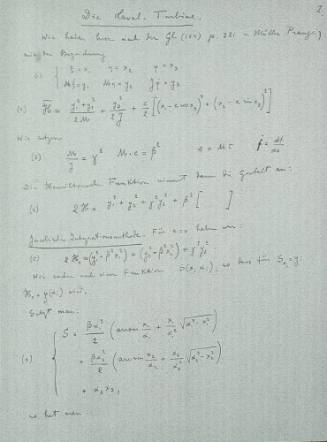 Die Laval-Turbine. 2.
Wir haben hier nach der Gl (184) p. 221 - Müller Prange,
Bezeichnung
(1) { ξ = x₁ η = x₂ φ = x₃
Mξ̇ = y₁ Mη̇ = y₂ Jφ̇ = y₃
(2) H̄ = (y₁² + y₂²)/2M + y₃²/2J + c/2 [(x₁ - e cos x₃)² + (x₂ - e sin x₃)²]
Wir setzen
(3) M/J = γ² M·c = β²
Die Hamiltonsche Funktion nimmt dann die Gestalt an:
(4) 2H = y₁² + y₂² + γ²y₃² + β² [ ]
Jacobische Integrationsmethode. Für e = 0 haben wir:
(5) 2H₀ = (y₁² + β²x₁²) + (y₂² + β²x₂²) + γ²y₃²
Wir suchen nach einer Funktion
wird.
Setzt man:
(6) { S = βα₁²/2 (arcsin x₁/α₁ + x₁/α₁² √(α₁² - x₁²))
+ βα₂²/2 (arcsin x₂/α₂ + x₂/α₂² √(α₂² - x₂²))
+ α₃x₃,
so hat man